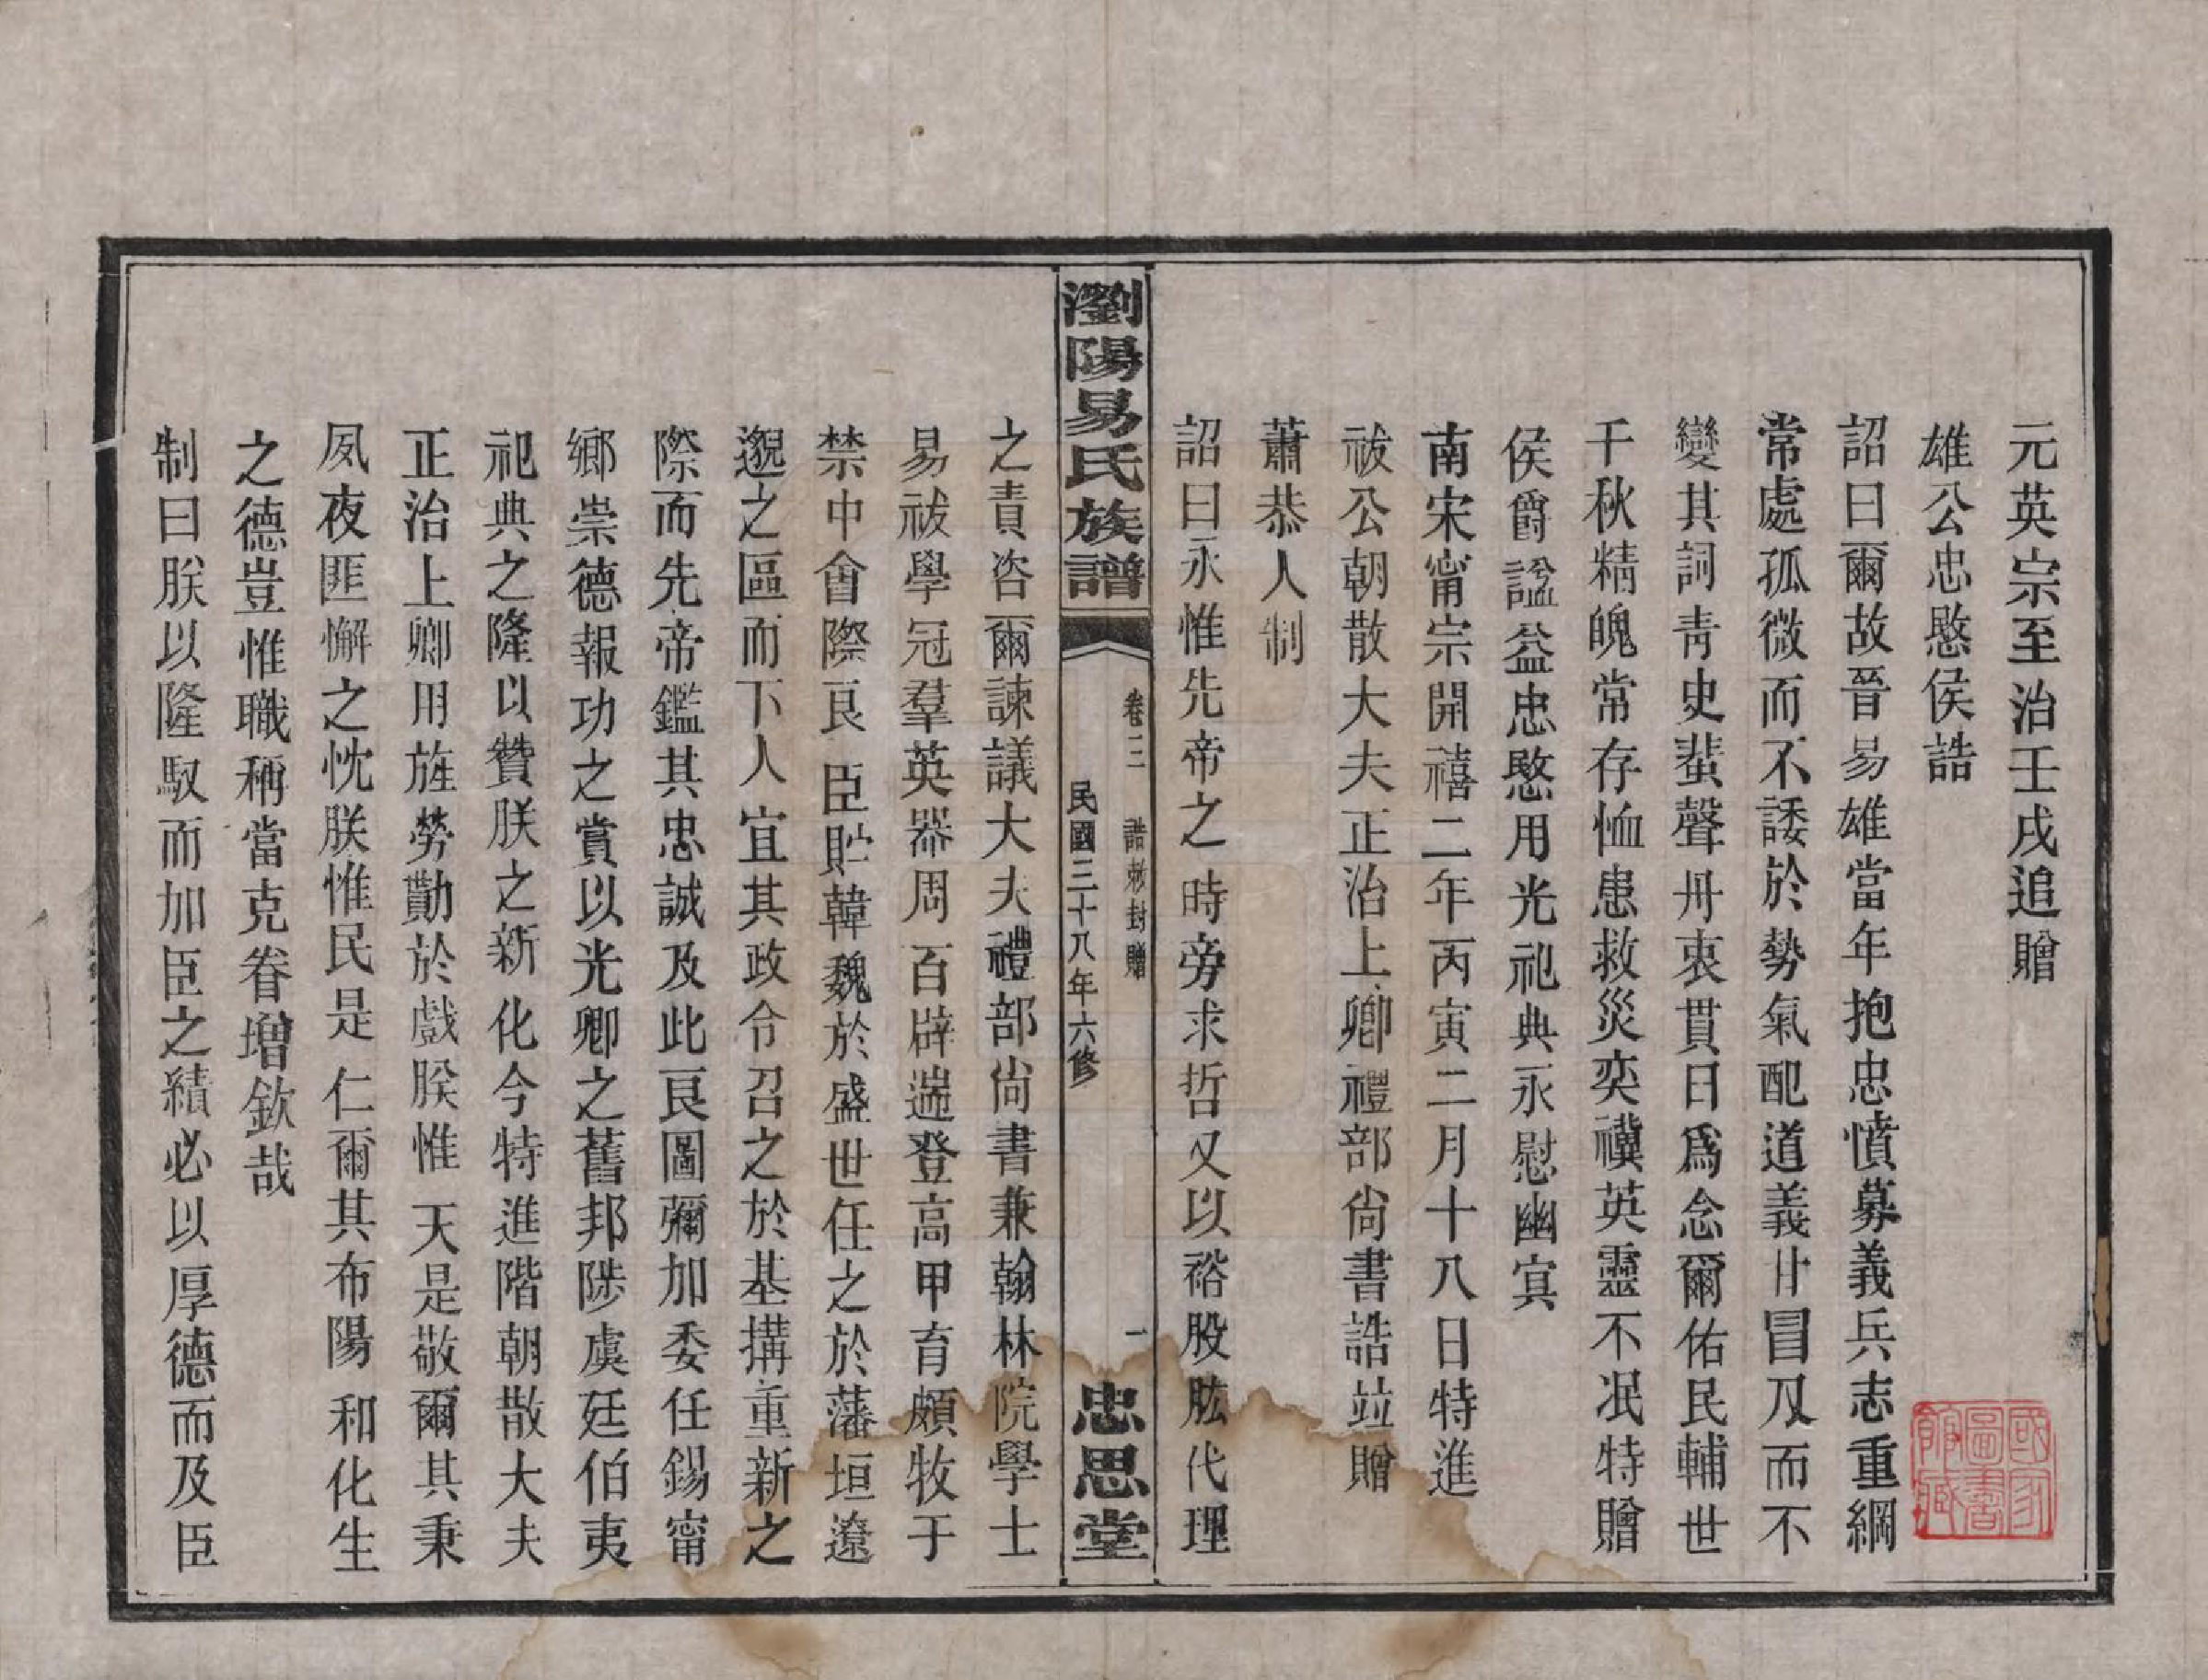 元英宗至治壬戌追贈
雄公忠愍侯誥
詔曰爾故晉易雄當年抱忠憤募義兵志重綱
常處孤微而不諉於勢氣配道義甘冒刃而不
變其詞靑史蜚聲丹衷貫日爲念爾佑民輔世
千秋精魄常存恤患救災奕禩英靈不冺特贈
侯爵諡益忠愍用光祀典永慰幽㝠
南宋甯宗開禧二年丙寅二月十八日特進
祓公朝散大夫正治上卿禮部尙書誥竝贈
蕭恭人制
詔曰永惟先帝之時旁求哲乂以裕股肱代理
瀏陽易氏族譜
卷三 誥敕封贈
一
民國三十八年六修
忠思堂
之責咨爾諫議大夫禮部尙書兼翰林院學士
易祓學冠羣英器周百辟遄登高甲育頗牧于
禁中會際良臣貯韓魏於盛世任之於藩垣遼
邈之區而下人宜其政令召之於基搆重新之
際而先帝鑑其忠誠及此艮圖彌加委任錫甯
鄉崇德報功之賞以光卿之舊邦陟虞廷伯夷
祀典之隆以贊朕之新化今特進階朝散大夫
正治上卿用旌勞勩於戲朕惟天是敬爾其秉
夙夜匪懈之忱朕惟民是仁爾其布陽和化生
之德豈惟職稱當克眷增欽哉
制曰朕以隆馭而加臣之績必以厚德而及臣